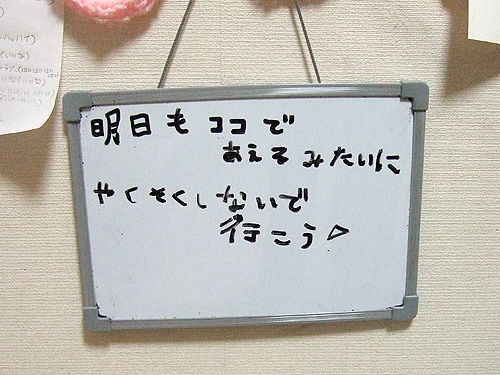 明日もココで
あえるみたいに
やくそくしないで
行こう